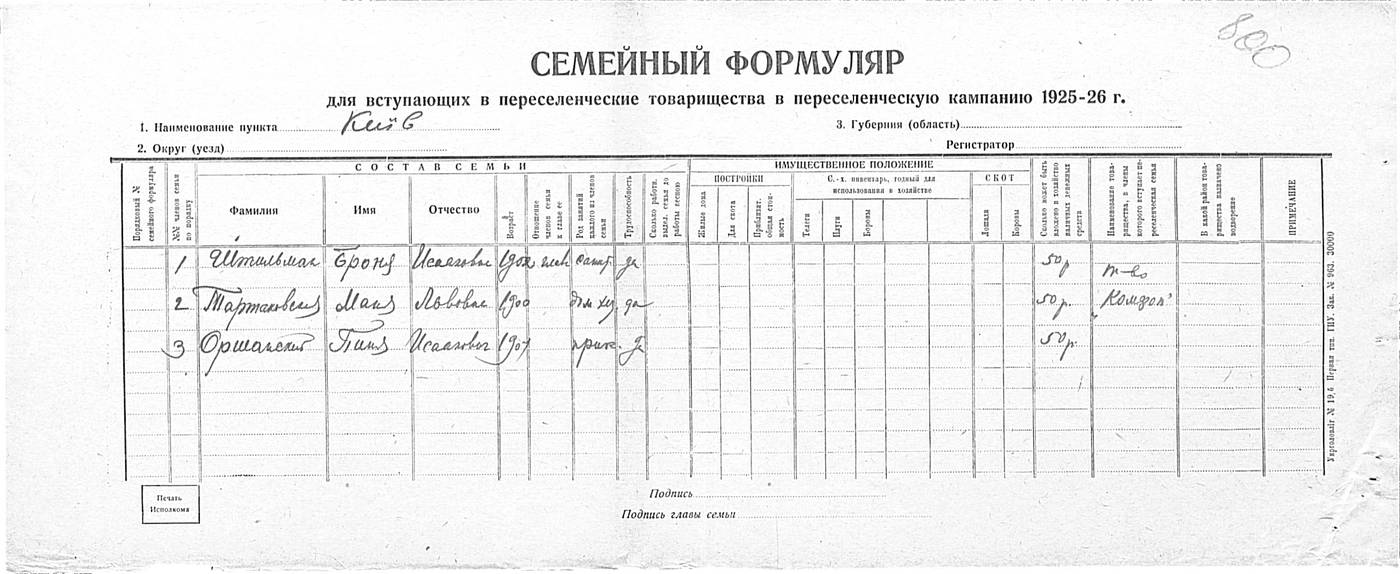 800
СЕМЕЙНЫЙ ФОРМУЛЯР
для вступающих в переселенческие товарищества в переселенческую кампанию 1925-26 г.
1. Наименование пункта Київ
3. Губерния (область)
2. Округ (уезд)
Регистратор
СОСТАВ СЕМЬИ
ИМУЩЕСТВЕННОЕ ПОЛОЖЕНИЕ
Порядковый № семейного формуляра
№№ членов семьи по порядку
Фамилия
Имя
Отчество
Возраст
Отношение членов семьи к главе ее
Род занятий каждого из членов семьи
Трудоспособность
Сколько работн. выдел. семья до работы весною
ПОСТРОЙКИ
Жилые дома
Для скота
Приблизит. общая стоимость
С.-х. инвентарь, годный для использования в хозяйстве
Телеги
Плуги
Бороны
СКОТ
Лошади
Коровы
Сколько может быть вложено в хозяйство наличных денежных средств
Наименование товарищества, в члены которого вступает переселенческая семья
В какой район товарищества назначено водворение
ПРИМЕЧАНИЕ
1 Штильман Броня Исааковна 1902 глав да 50 р т-во
2 Тартаковская Маня Львовна 1900 да 50 р.
3 Оршанский Пиня Исаакович да 50 р.
Печать
Исполкома
Подпись
Подпись главы семьи
Укрголовліт № 19,6 Первая тип. ГПУ. Зак. № 963. 30000